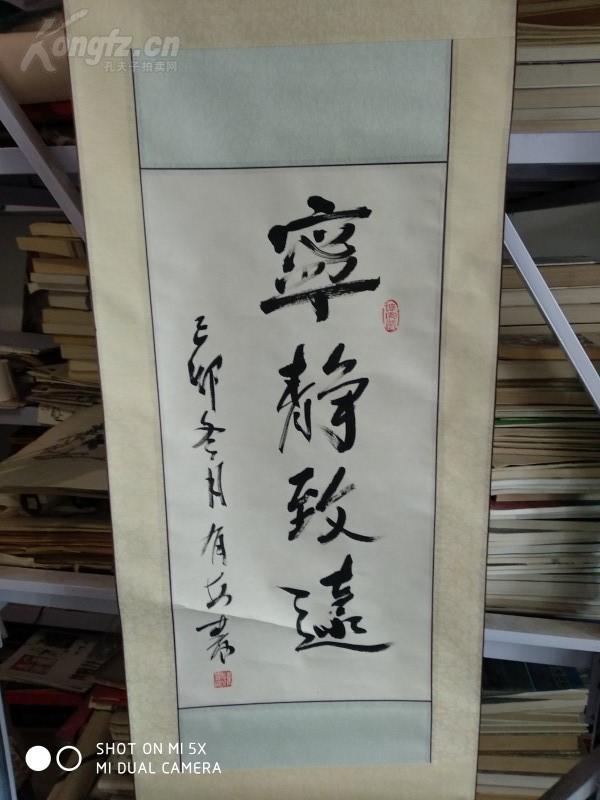 Kongfz.cn
孔夫子拍卖网
寧靜致遠
己卯冬月有
SHOT ON MI 5X
MI DUAL CAMERA